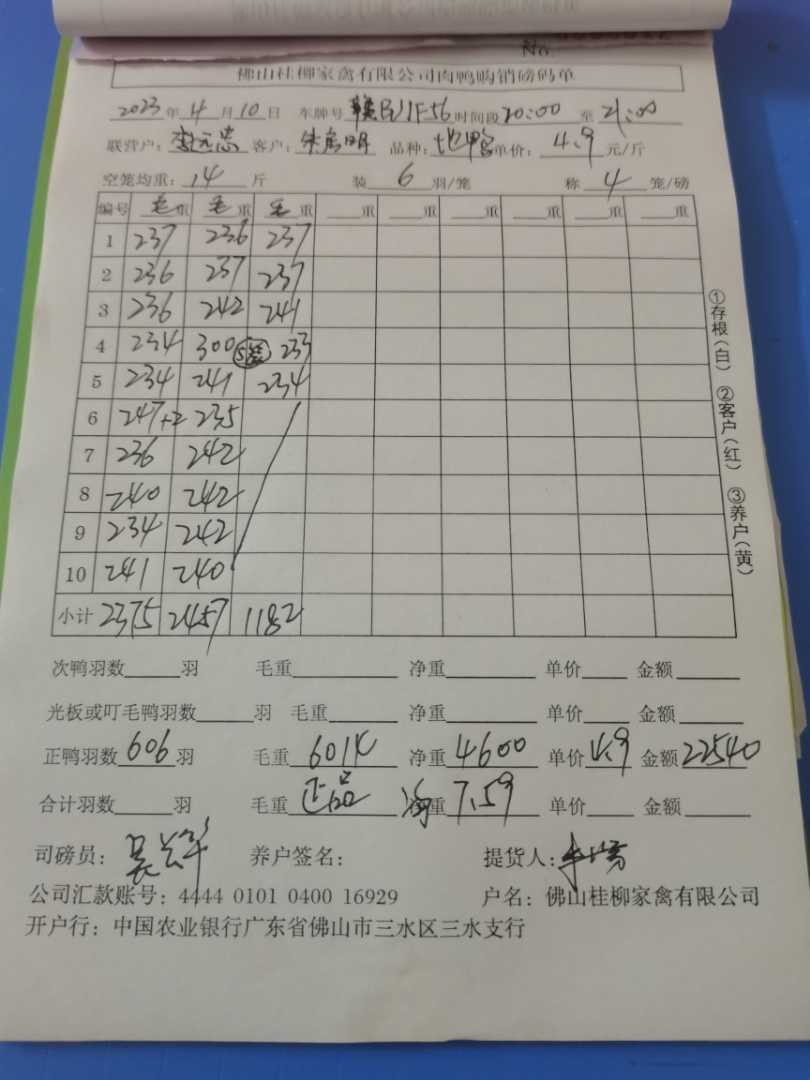 No.
佛山桂柳家禽有限公司肉鸭购销磅码单
2023年4月10日 车牌号 时间段20:00至21:00
联营户: 客户: 品种: 单价:4.9元/斤
空笼均重:14斤 装6羽/笼 称4笼/磅
编号 毛重 毛重 毛重 重 重 重 重 重 重
1 237 236 237
2 236 237 237
3 236 242 241
4 234 300 233
5 234 241 234
6 247+2 235
7 236 242
8 240 242
9 234 242
10 241 240
小计 2375 2457 1182
①存根(白) ②客户(红) ③养户(黄)
次鸭羽数 羽 毛重 净重 单价 金额
光板或叮毛鸭羽数 羽 毛重 净重 单价 金额
正鸭羽数606羽 毛重6014 净重4600 单价4.9 金额22540
合计羽数 羽 毛重正品 净重7.59 单价 金额
司磅员: 养户签名: 提货人:
公司汇款账号: 4444 0101 0400 16929 户名: 佛山桂柳家禽有限公司
开户行: 中国农业银行广东省佛山市三水区三水支行